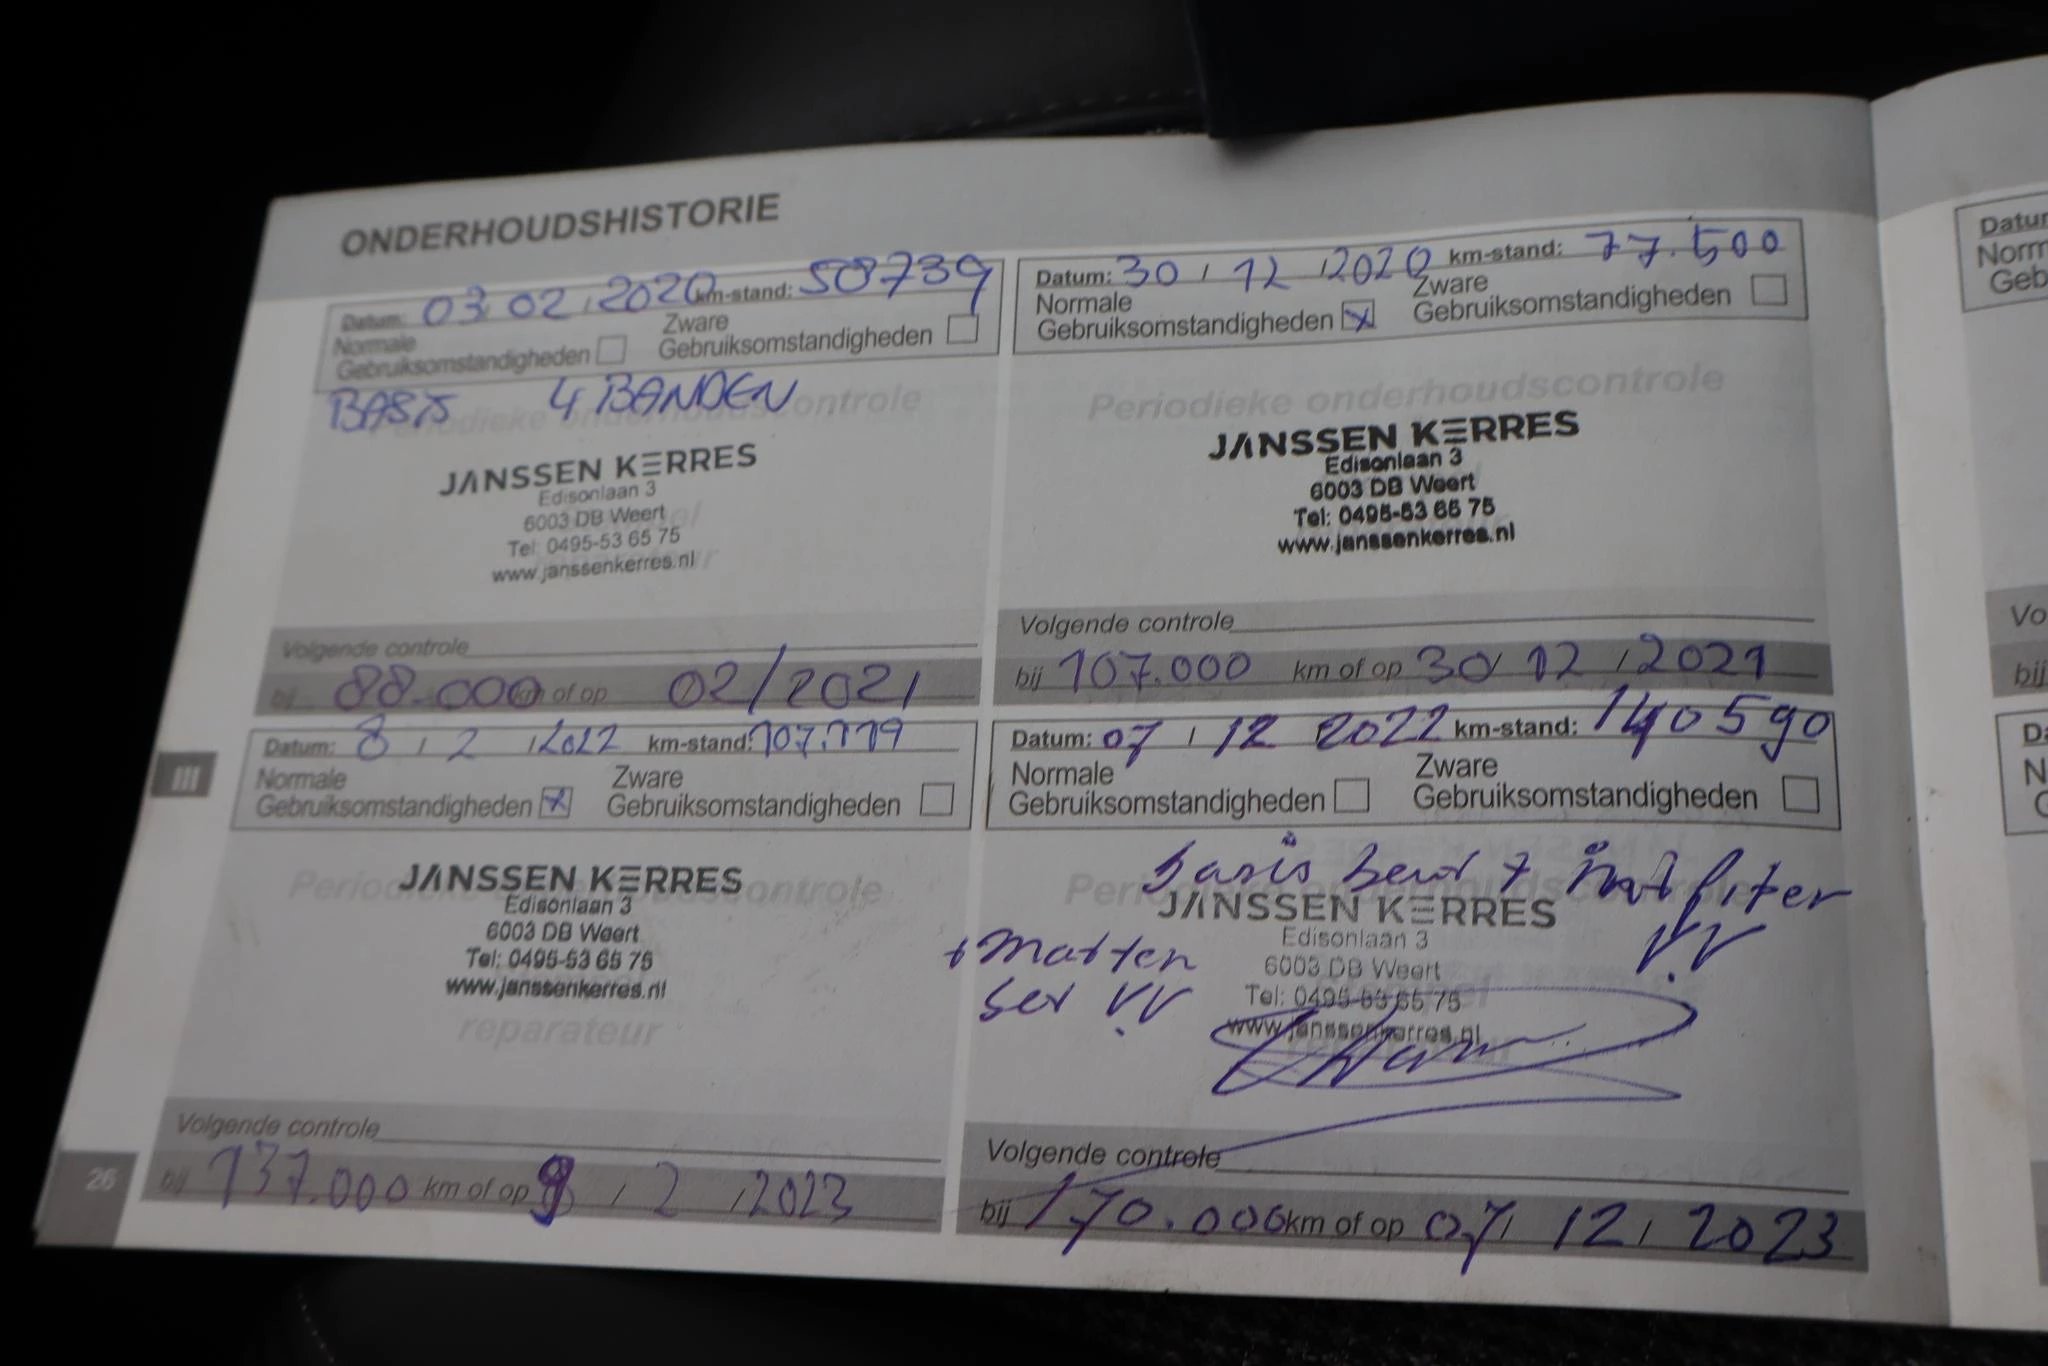 ONDERHOUDSHISTORIE
Datum: 03 02 2020 km-stand: 58739
Normale Zware
Gebruiksomstandigheden Gebruiksomstandigheden
BASIS 4 BANDEN
Periodieke onderhoudscontrole
JANSSEN KERRES
Edisonlaan 3
6003 DB Weert
Tel: 0495-53 65 75
www.janssenkerres.nl
Volgende controle
bij 88.000 km of op 02/2021
Datum: 30 / 12 / 2020 km-stand: 77.500
Normale Zware
Gebruiksomstandigheden x Gebruiksomstandigheden
Periodieke onderhoudscontrole
JANSSEN KERRES
Edisonlaan 3
6003 DB Weert
Tel: 0495-53 65 75
www.janssenkerres.nl
Volgende controle
bij 107.000 km of op 30 / 12 / 2021
Datum: 8 / 2 / 2022 km-stand: 107.119
Normale Zware
Gebruiksomstandigheden x Gebruiksomstandigheden
Periodieke onderhoudscontrole
JANSSEN KERRES
Edisonlaan 3
6003 DB Weert
Tel: 0495-53 65 75
www.janssenkerres.nl
reparateur
Volgende controle
bij 137.000 km of op 9 / 2 / 2023
Datum: 07 / 12 2022 km-stand: 140590
Normale Zware
Gebruiksomstandigheden Gebruiksomstandigheden
basis beurt + filter
Periodieke onderhoudscontrole
JANSSEN KERRES
Edisonlaan 3
+ matten
6003 DB Weert
set V.V
V.V
Tel: 0495-53 65 75
www.janssenkerres.nl
Volgende controle
bij 170.000 km of op 07 / 12 / 2023
III
26
Datu
Norm
Geb
Vo
bij
Da
N
G